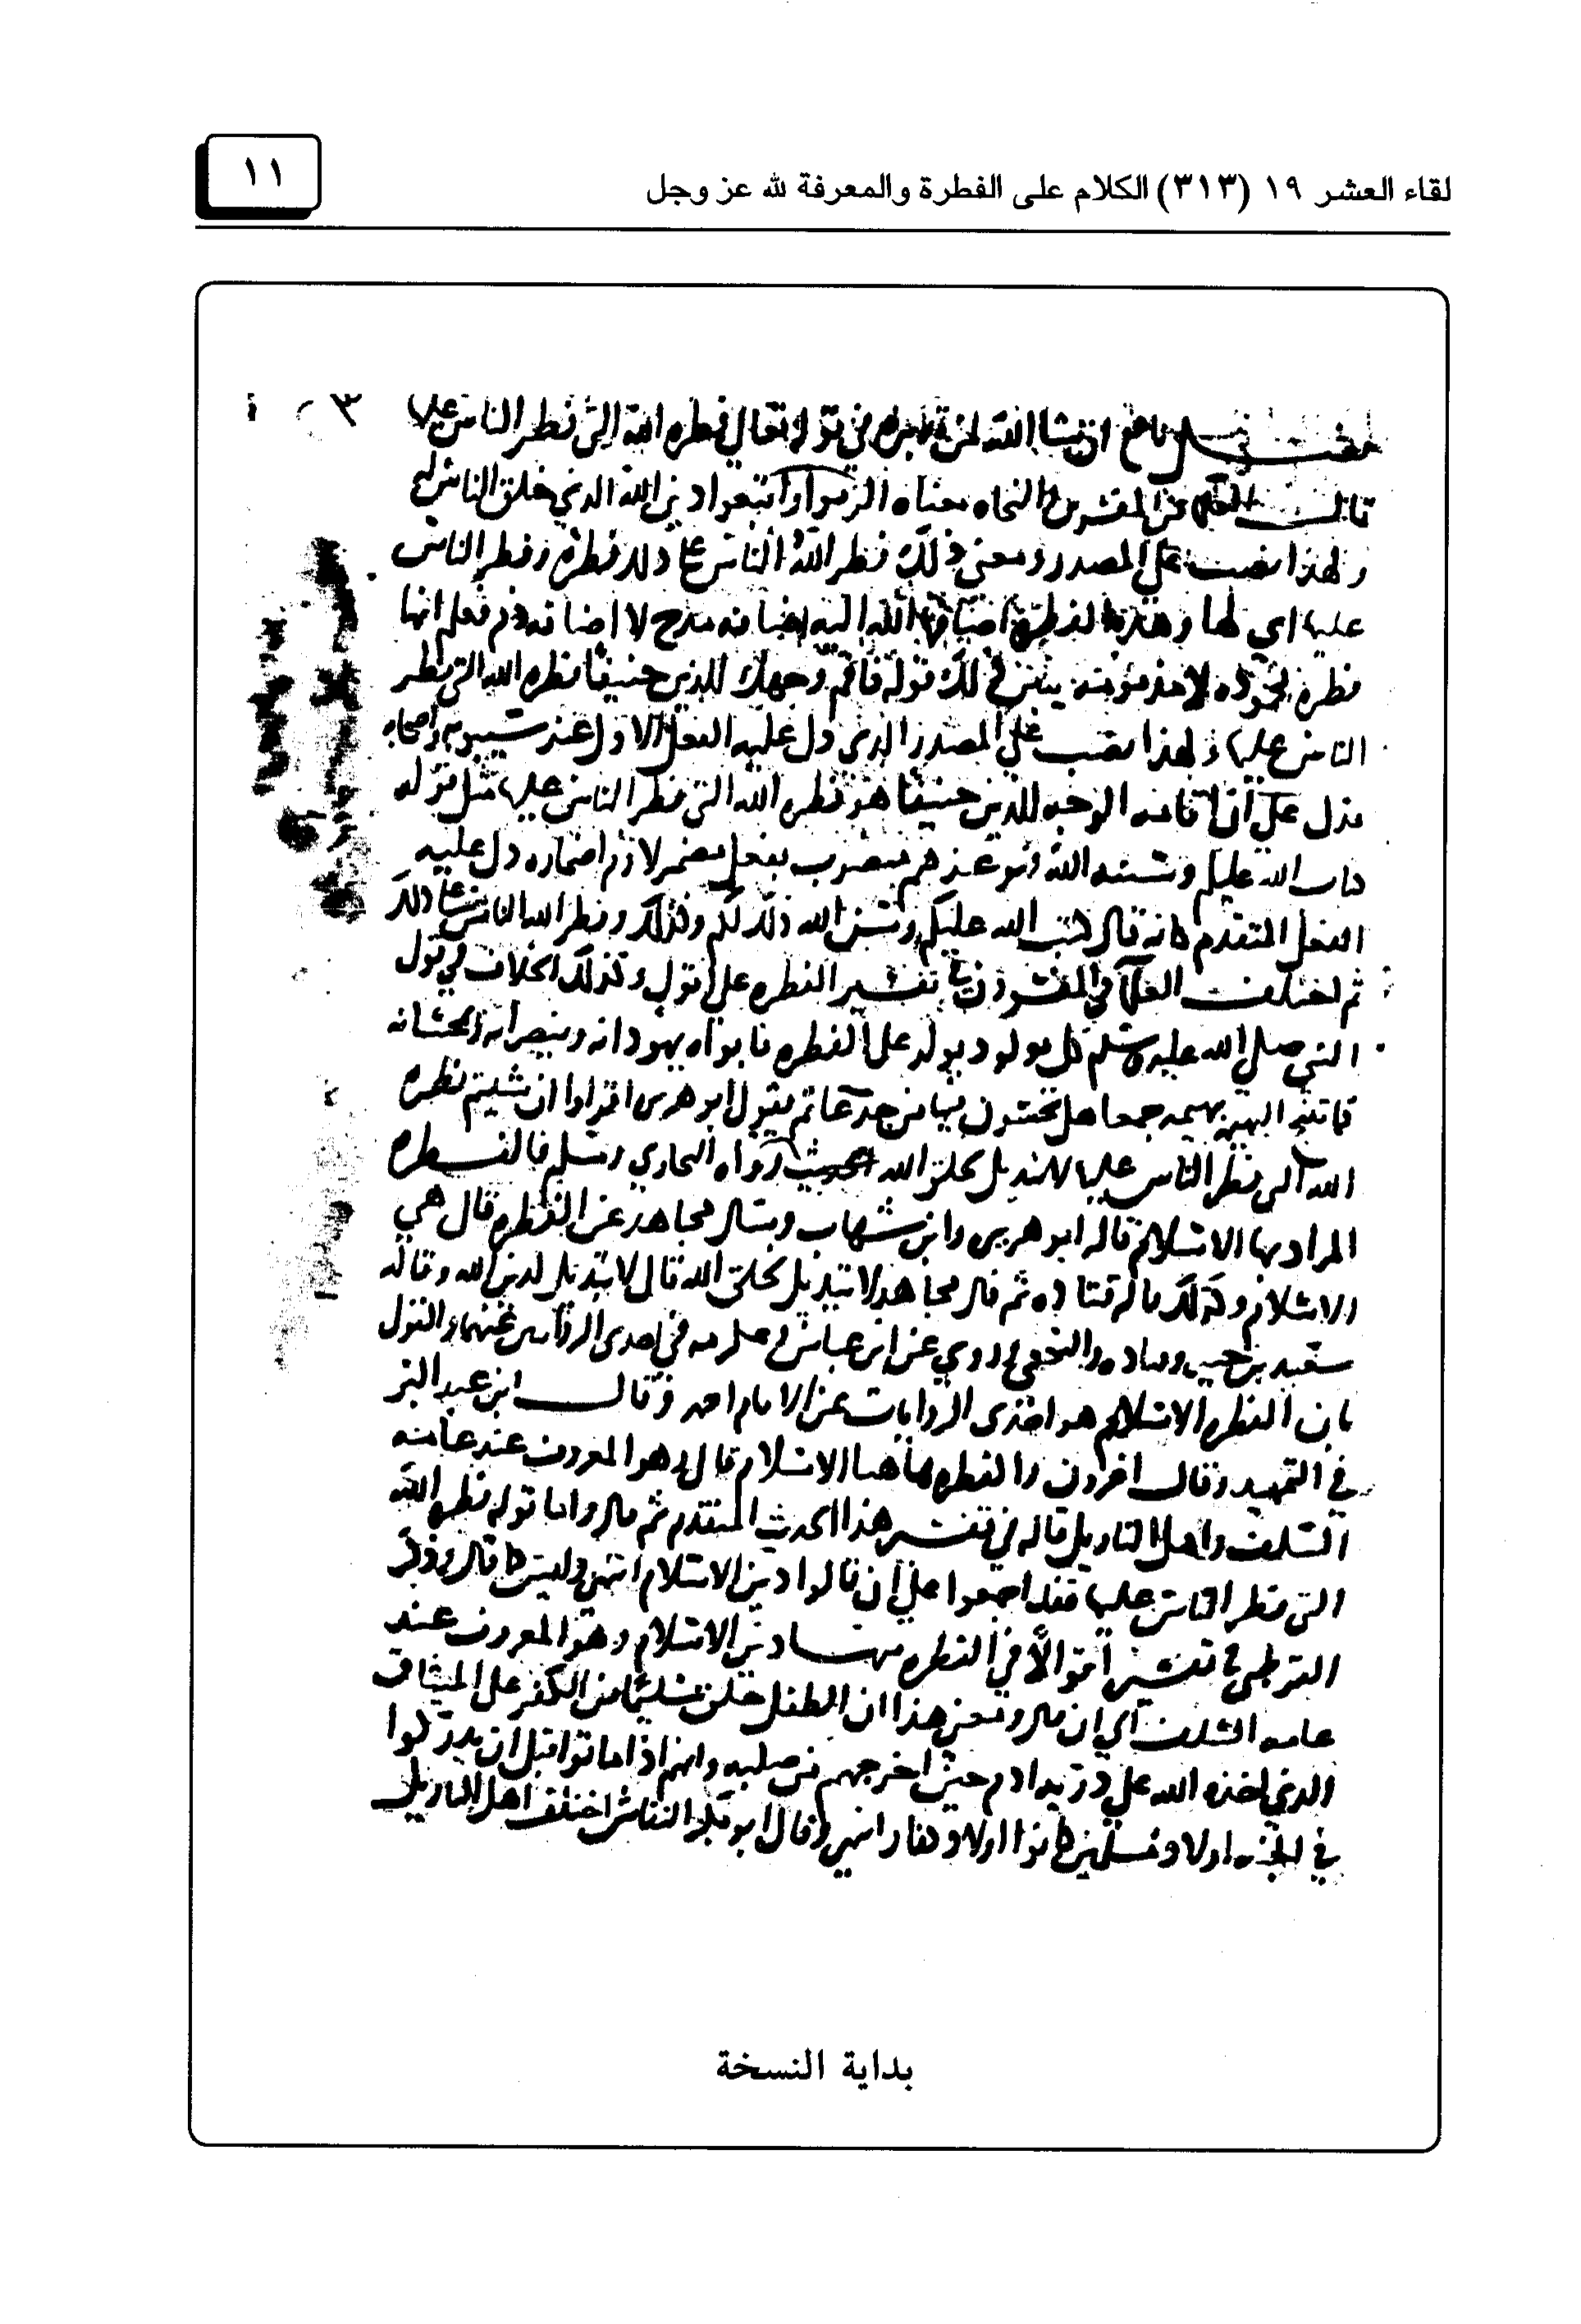 لقاء العشر ١٩ (٣١٣) الكلام على الفطرة والمعرفة لله عز وجل
١١
نافع ان شا الله لمن تدبره في قوله تعالي فطره الله التي فطر الناس عليها
معناه الزموا او اتبعوا دين الله الذي خلق الناس له
ولهذا نصب علي المصدر ومعني ذلك فطر الله الناس علي ذلك فطره وفطر الناس
عليها اي لها وهذه الفطره اضافها الله اليه اضافه مدح لا اضافه ذم فعلم انها
فطره محموده لا مذمومه يبين ذلك قوله فاقم وجهك للدين حنيفا فطره الله التي فطر
الناس عليها ولهذا نصب علي المصدر الذي دل عليه الفعل الاول عند سيبويه واصحابه
فدل علي ان اقامه الوجه للدين حنيفا هو فطره الله التي فطر الناس عليها مثل قوله
كاب الله عليكم وسنه الله فهو عندهم منصوب بفعل مضمر لازم اضماره دل عليه
الفعل المتقدم كانه قال كتب الله عليكم وسن الله ذلك لكم وكذلك وفطر الله الناس علي ذلك
ثم اختلف العلما والمفسرون في تفسير الفطره علي اقوال وكذلك الخلاف في قول
النبي صلي الله عليه وسلم كل مولود يولد علي الفطره فابواه يهودانه وينصرانه ويمجسانه
كما تنتج البهيمه بهيمه جمعا هل تحسون فيها من جدعا ثم يقول ابو هريره اقراوا ان شيتم فطره
الله التي فطر الناس عليها لا تبديل لخلق الله الحديث رواه البخاري ومسلم فالفطره
المراد بها الاسلام قاله ابو هريره وابن شهاب وسال مجاهد عن الفطره قال هي
الاسلام وكذلك قال قتاده ثم قال مجاهد لا تبديل لخلق الله قال لا تبديل لدين الله وقاله
سعيد بن جبير وقتاده والنخعي وروي عن ابن عباس وعكرمه في احدي الروايتين عنهما والقول
بان الفطره الاسلام هو احدي الروايات عن الامام احمد وقال ابن عبد البر
في التمهيد وقال اخرون والفطره هاهنا الاسلام قال وهو المعروف عند عامه
السلف واهل التاويل قاله في تفسير هذا الحديث المتقدم ثم قال واما قوله فطره الله
التي فطر الناس عليها فقد اجمعوا علي ان قالوا دين الاسلام انتهي وليس كما قال وذكر
القرطبي في تفسيره اقوالا في الفطره منها دين الاسلام وهو المعروف عند
عامه السلف الي ان قال ومعني هذا ان الطفل خلق سليما من الكفر علي الميثاق
الذي اخذه الله علي ذريه ادم حين اخرجهم من صلبه وانهم اذا ماتوا قبل ان يدركوا
في الجنه اولاد مسلمين كانوا اولاد كفار انتهي وقال ابو بكر النقاش اختلف اهل التاويل
بداية النسخة